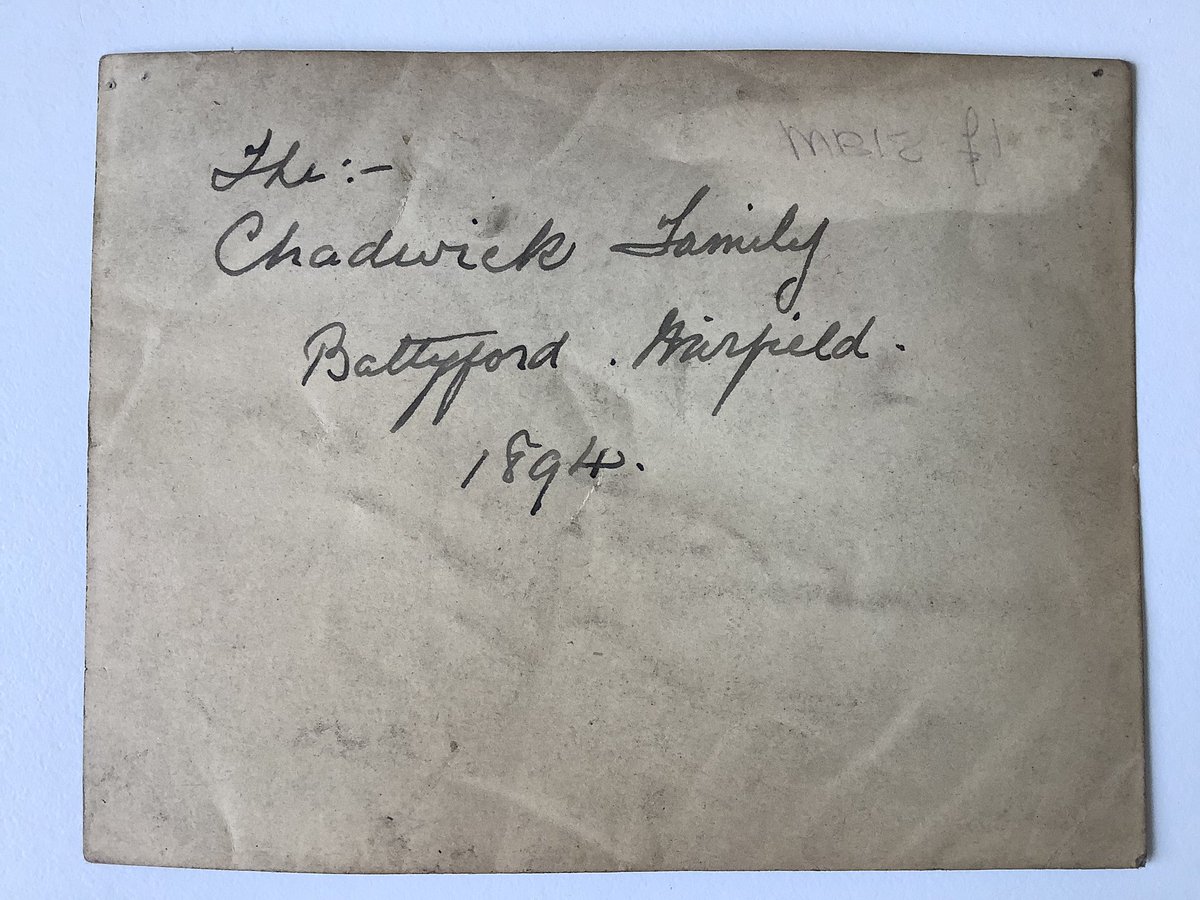 The:-
Chadwick Family
Battyford . Mirfield.
1894.